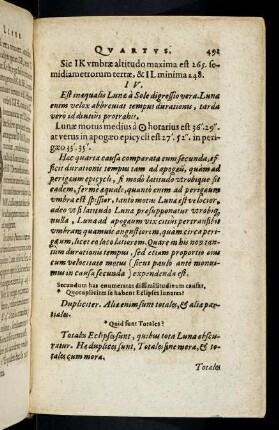 QVARTVS. 491
Sic IK vmbræ altitudo maxima est 265. se-
midiametrorum terræ, & IL minima 248.
IV.
Est inæqualis Lunæ à Sole digressio vera. Luna
enim velox abbreuiat tempus durationis, tarda
verò id diutius protrahit.
Lunæ motus medius à ☉ horarius est 30'.29''.
at verus in apogæo epicycli est 27'.52''. in peri-
gæo 35'.35''.
Hac quarta causa comparata cum secunda, ef-
ficit durationis tempus tam ad apogæū, quàm ad
perigæum epicycli, si modò latitudo vtrobique sit
eadem, fermè equale: quantò enim ad perigæum
vmbra est spissior, tantò motus Lunæ est velocior,
adeò vt si latitudo Lunæ præsupponatur vtrobiq;
nulla, Luna ad apogæum vix citius pertranseat
vmbram quamuis angustiorem, quàm circa perigæ-
um, licet eo loco latiorem. Quare mihi non tan-
tùm durationis tempus, sed etiam proportio eius
cum velocitate motus (sicut paulò antè monui-
mus in causa secunda) expendendu est.
Secundum has enumeratas dissimilitudinum causas,
* Quotuplicitèr se habent Eclipses lunares?
Dupliciter. Aliæ enim sunt totales, & aliæ par-
tiales.
* Quid sunt Totales?
Totales Eclipses sunt, quibus tota Luna obscu-
ratur. Hæ duplices sunt, Totales sine mora, & to-
tales cum mora.
Totales